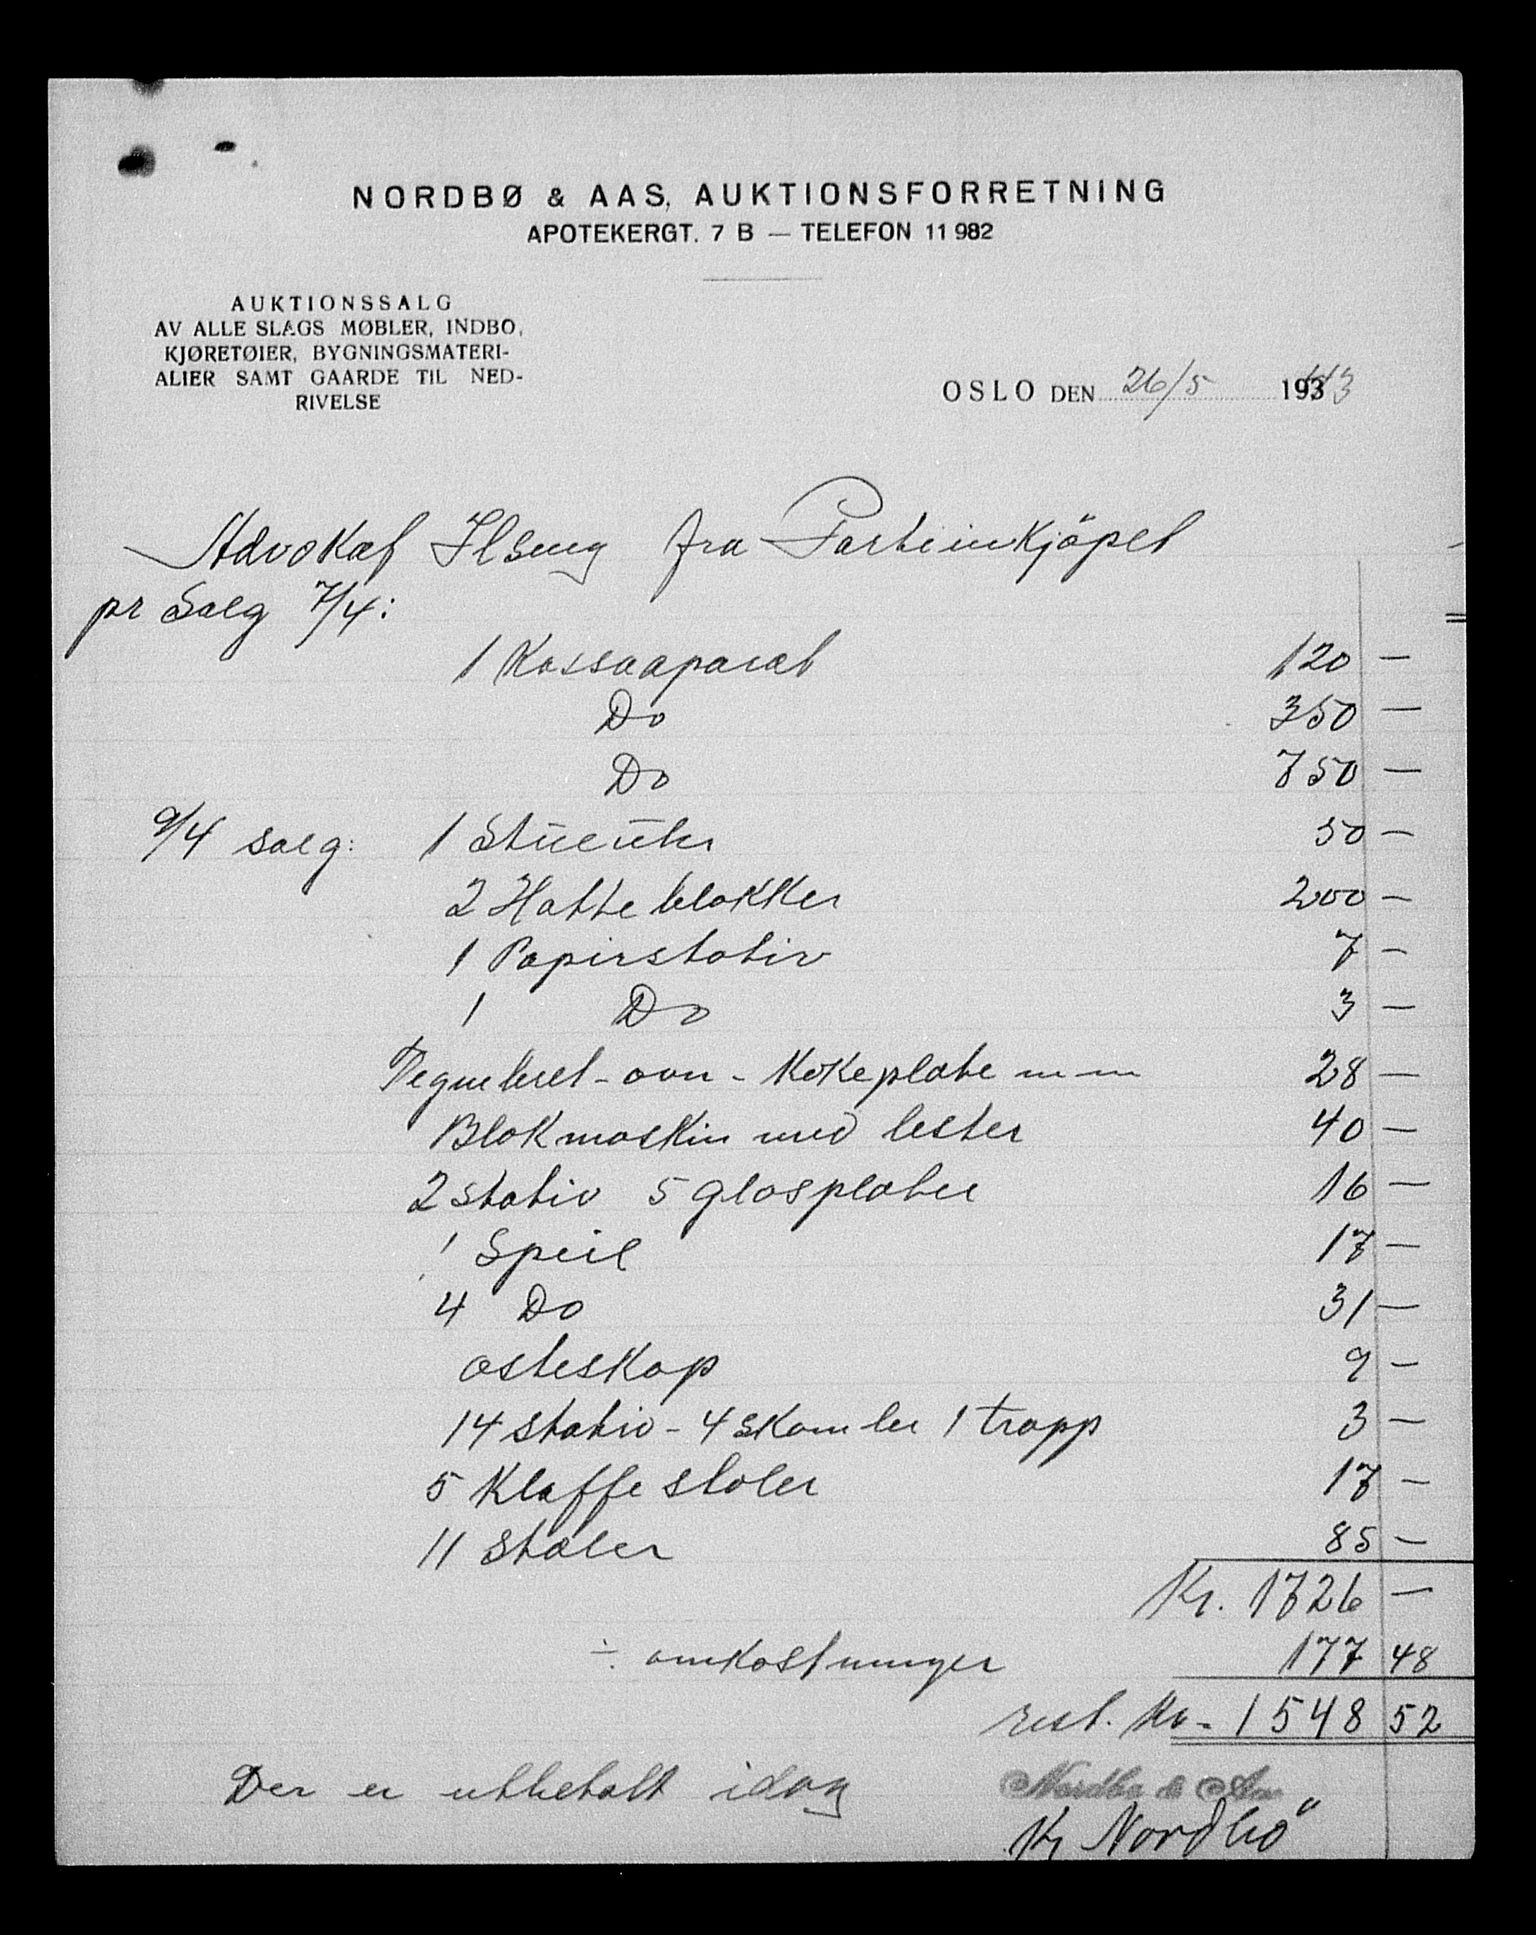 NORDBØ & AAS, AUKTIONSFORRETNING
APOTEKERGT. 7 B — TELEFON 11 982
AUKTIONSSALG
AV ALLE SLAGS MØBLER, INDBO,
KJØRETØIER, BYGNINGSMATERI-
ALIER SAMT GAARDE TIL NED-
RIVELSE
OSLO DEN 26/5 19343
Advokat Ilseng fra Partiinkjöpet
pr Salg 7/4:
1 Kassaaparat 120 —
Do 350 —
Do 750 —
9/4 salg: 1 Stueuhr 50 —
2 Hatteblokker 200 —
1 Papirstativ 7 —
1 Do 3 —
- ovn - Kokeplate m-m 28 —
Blokmaskin med lester 40 —
2 stativ 5 glasplater 16 —
1 Speil 17 —
4 Do 31 —
osteskap 9 —
14 stativ - 4 skamler 1 trapp 3 —
5 Klaffestoler 17 —
11 Stoler 85 —
Kr. 1726 —
÷ omkostninger 177 48
rest. Kr - 1548 52
Der er utbetalt idag
Nordbø & Aas
Kr Nordbö